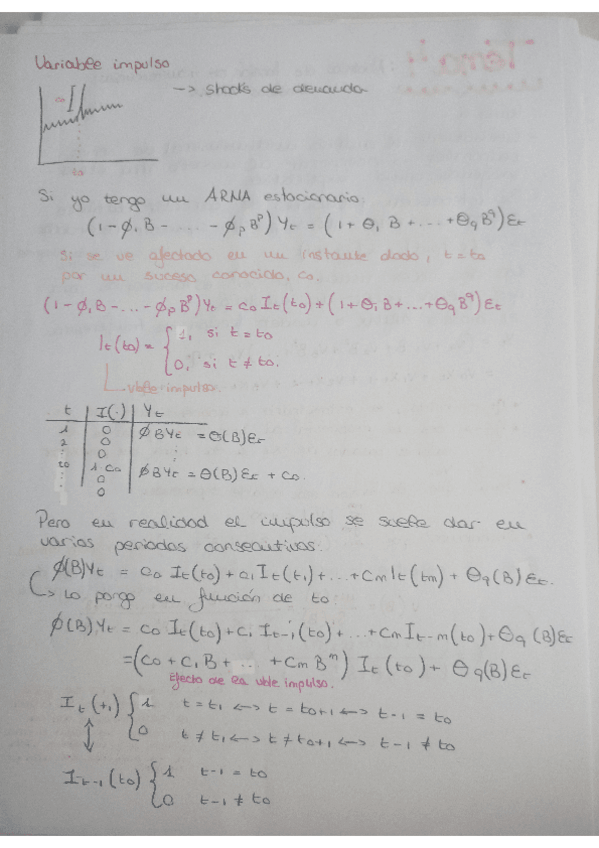 Variable impulso
-> shocks de demanda
co
to
Si yo tengo un ARMA estacionario:
(1 - φ₁B - ... - φpB^p) Yt = (1 + θ₁ B + ... + θq B^q) Et
Si se ve afectado en un instante dado, t = to
por un suceso conocido, co.
(1 - φ₁B - ... - φpB^p) Yt = co It(to) + (1 + θ₁ B + ... + θq B^q) Et
It(to) = { 1, si t = to
0, si t ≠ to.
vble impulso.
t | I(·) | Yt
1 | 0 | φBYt = θ(B)Et
2 | 0 | ⋮
⋮ | 0
to | 1 co | φBYt = θ(B)Et + co.
⋮ | 0
0
Pero en realidad el impulso se suele dar en
varios periodos consecutivos.
φ(B)Yt = co It(to) + c₁ It(t₁) + ... + cm It(tm) + θq(B)Et.
↳ Lo pongo en función de to:
φ(B)Yt = co It(to) + c₁ It-1(to) + ... + cm It-m(to) + θq(B)Et
= (co + c₁ B + ... + cm B^m) It(to) + θq(B)Et
Efecto de la vble impulso.
It(t₁) { 1 t = t₁ <-> t = to+1 <-> t-1 = to
0 t ≠ t₁ <-> t ≠ to+1 <-> t-1 ≠ to
↕
It-1(to) { 1 t-1 = to
0 t-1 ≠ to